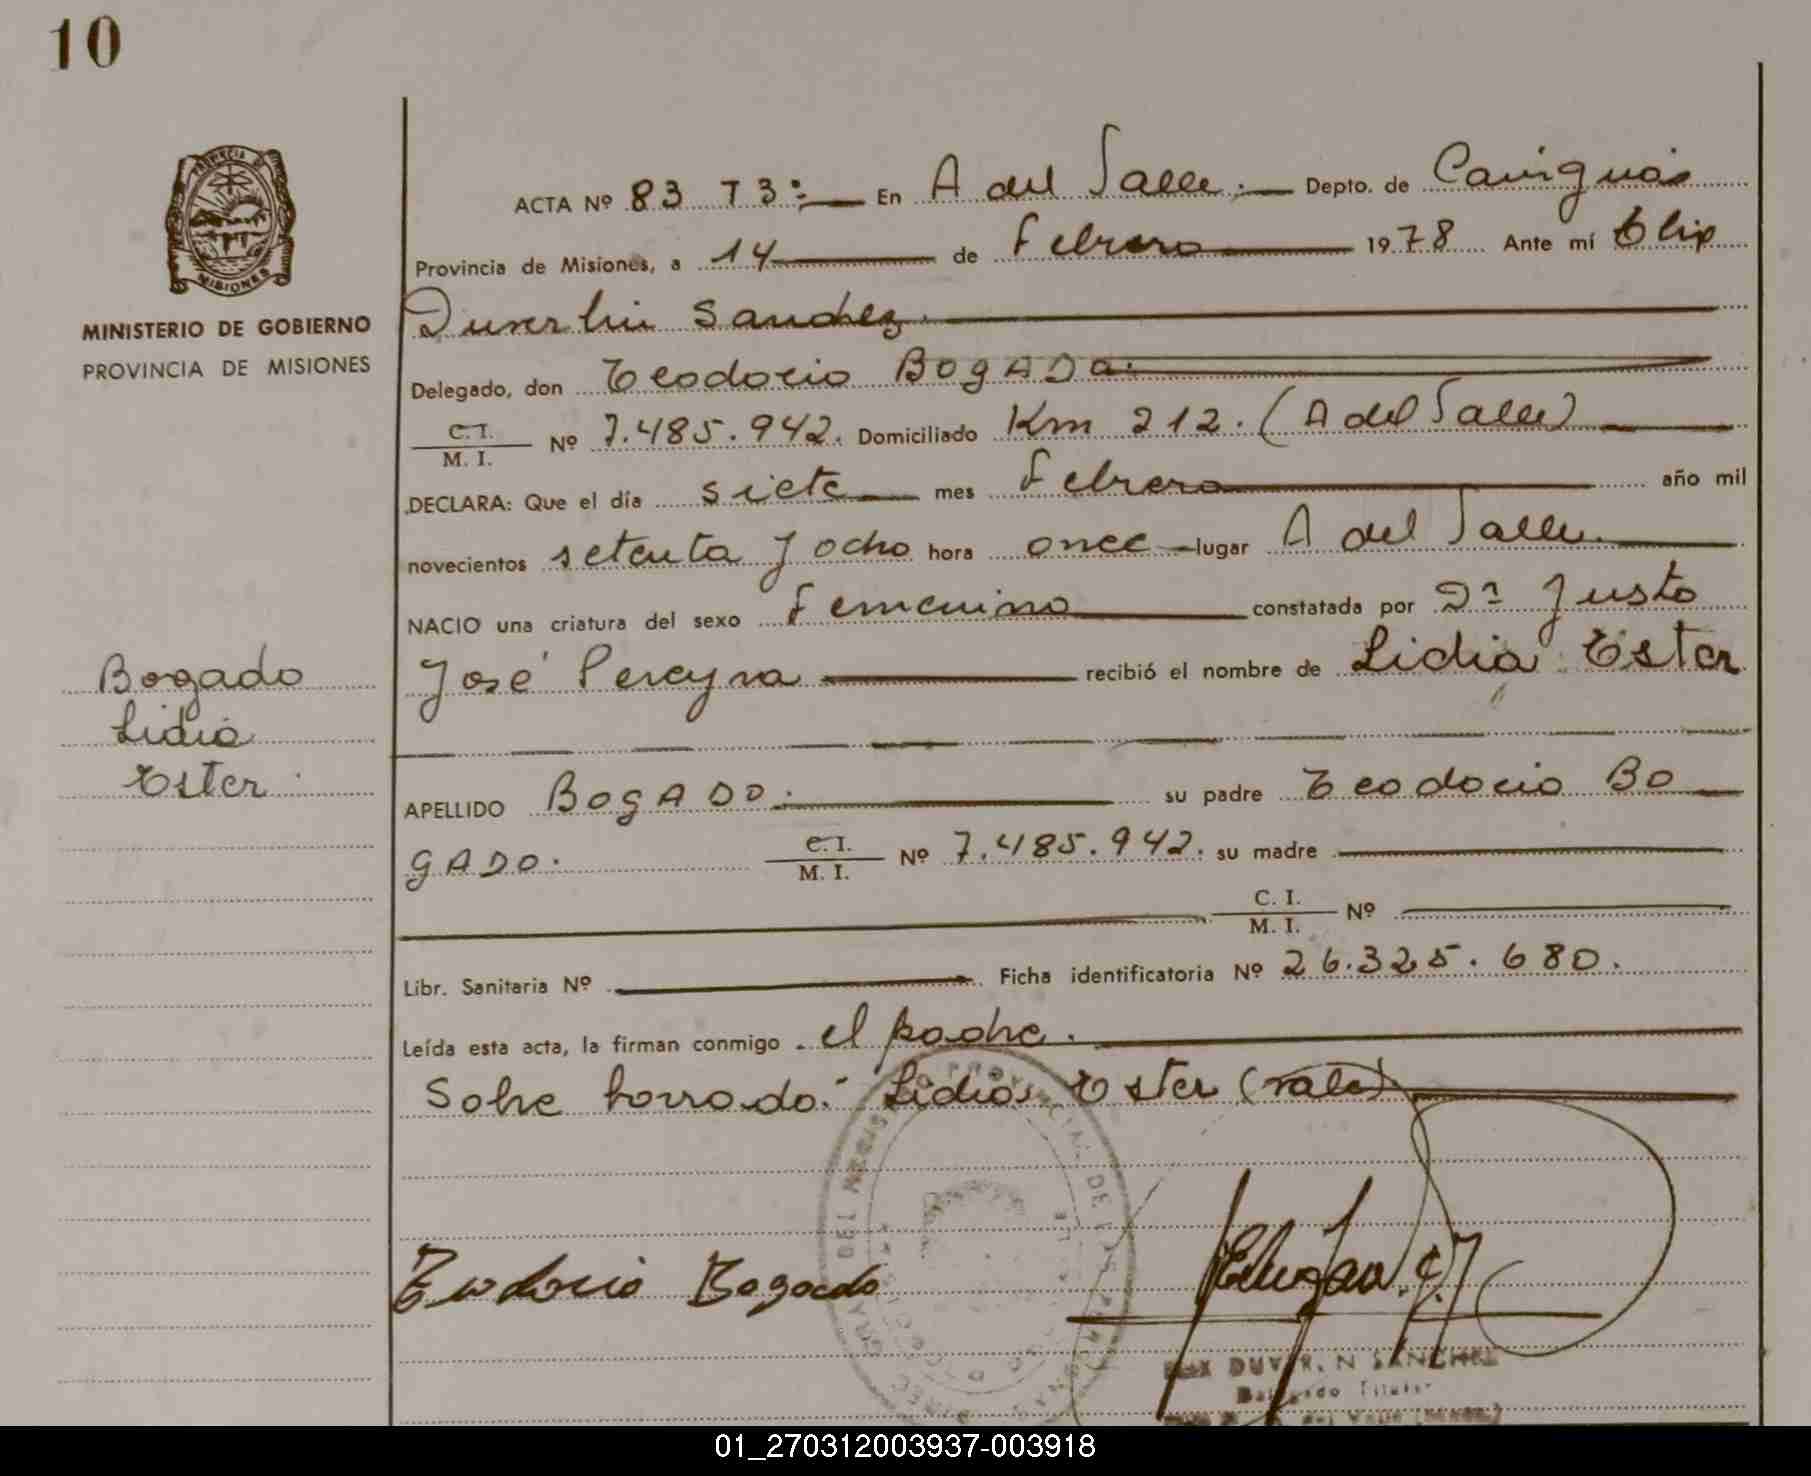 10
PROVINCIA DE
MISIONES
MINISTERIO DE GOBIERNO
PROVINCIA DE MISIONES
Bogado
Lidia
Ester
ACTA Nº 83 T3: En A del Valle. Depto. de Cainguás
Provincia de Misiones, a 14 de Febrero 1978 Ante mí Elix
Duverlin Sanchez
Delegado, don Teodocio BOGADO.
C. I.
M. I. Nº 7.485.942. Domiciliado Km 212. (A del Valle)
DECLARA: Que el día siete mes Febrero año mil
novecientos setenta y ocho hora once lugar A del Valle.
NACIO una criatura del sexo Femenino constatada por Dn Justo
José Pereyra recibió el nombre de Lidia Ester
APELLIDO BOGADO. su padre Teodocio BO
GADO. C. I.
M. I. Nº 7.485.942. su madre
C. I.
M. I. Nº
Libr. Sanitaria Nº Ficha identificatoria Nº 26.325.680.
Leída esta acta, la firman conmigo el padre.
Sobre borrado: Lidia Ester (vale)
Teodocio Bogado
DUVER N SANCHEZ
Delegado Titular
01_270312003937-003918